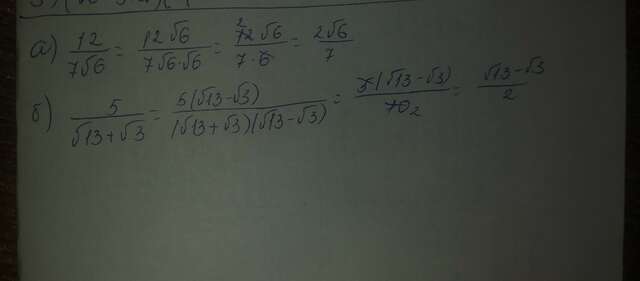 а) 12/7√6 = 12√6/7√6·√6 = 12√6/7·6 = 2√6/7
б) 5/√13+√3 = 5(√13-√3)/(√13+√3)(√13-√3) = 5(√13-√3)/10 2 = √13-√3/2